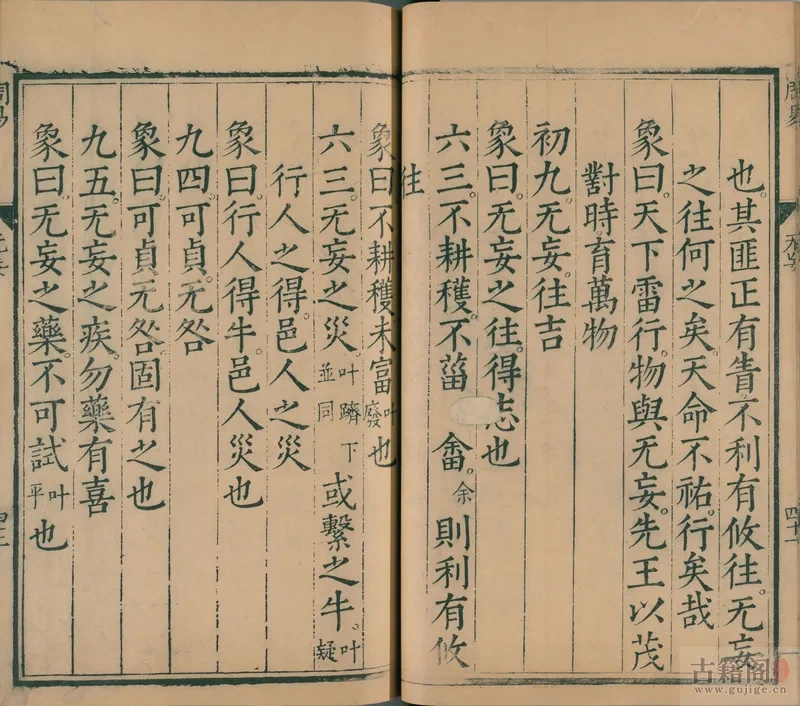 周易
无妄
四十一
也。其匪正有眚。不利有攸往。无妄
之往何之矣。天命不祐。行矣哉
象曰。天下雷行。物與无妄。先王以茂
對時育萬物
初九。无妄。往吉
象曰。无妄之往。得志也
六三。不耕穫。不菑畬。余則利有攸
往
象曰。不耕穫。未富叶廢也
六三。无妄之災。叶躋下並同或繫之牛。叶疑
行人之得。邑人之災
象曰。行人得牛。邑人災也
九四。可貞。无咎
象曰。可貞无咎。固有之也
九五。无妄之疾。勿藥有喜
象曰。无妄之藥。不可試叶平也
古籍阁
www.gujige.cn